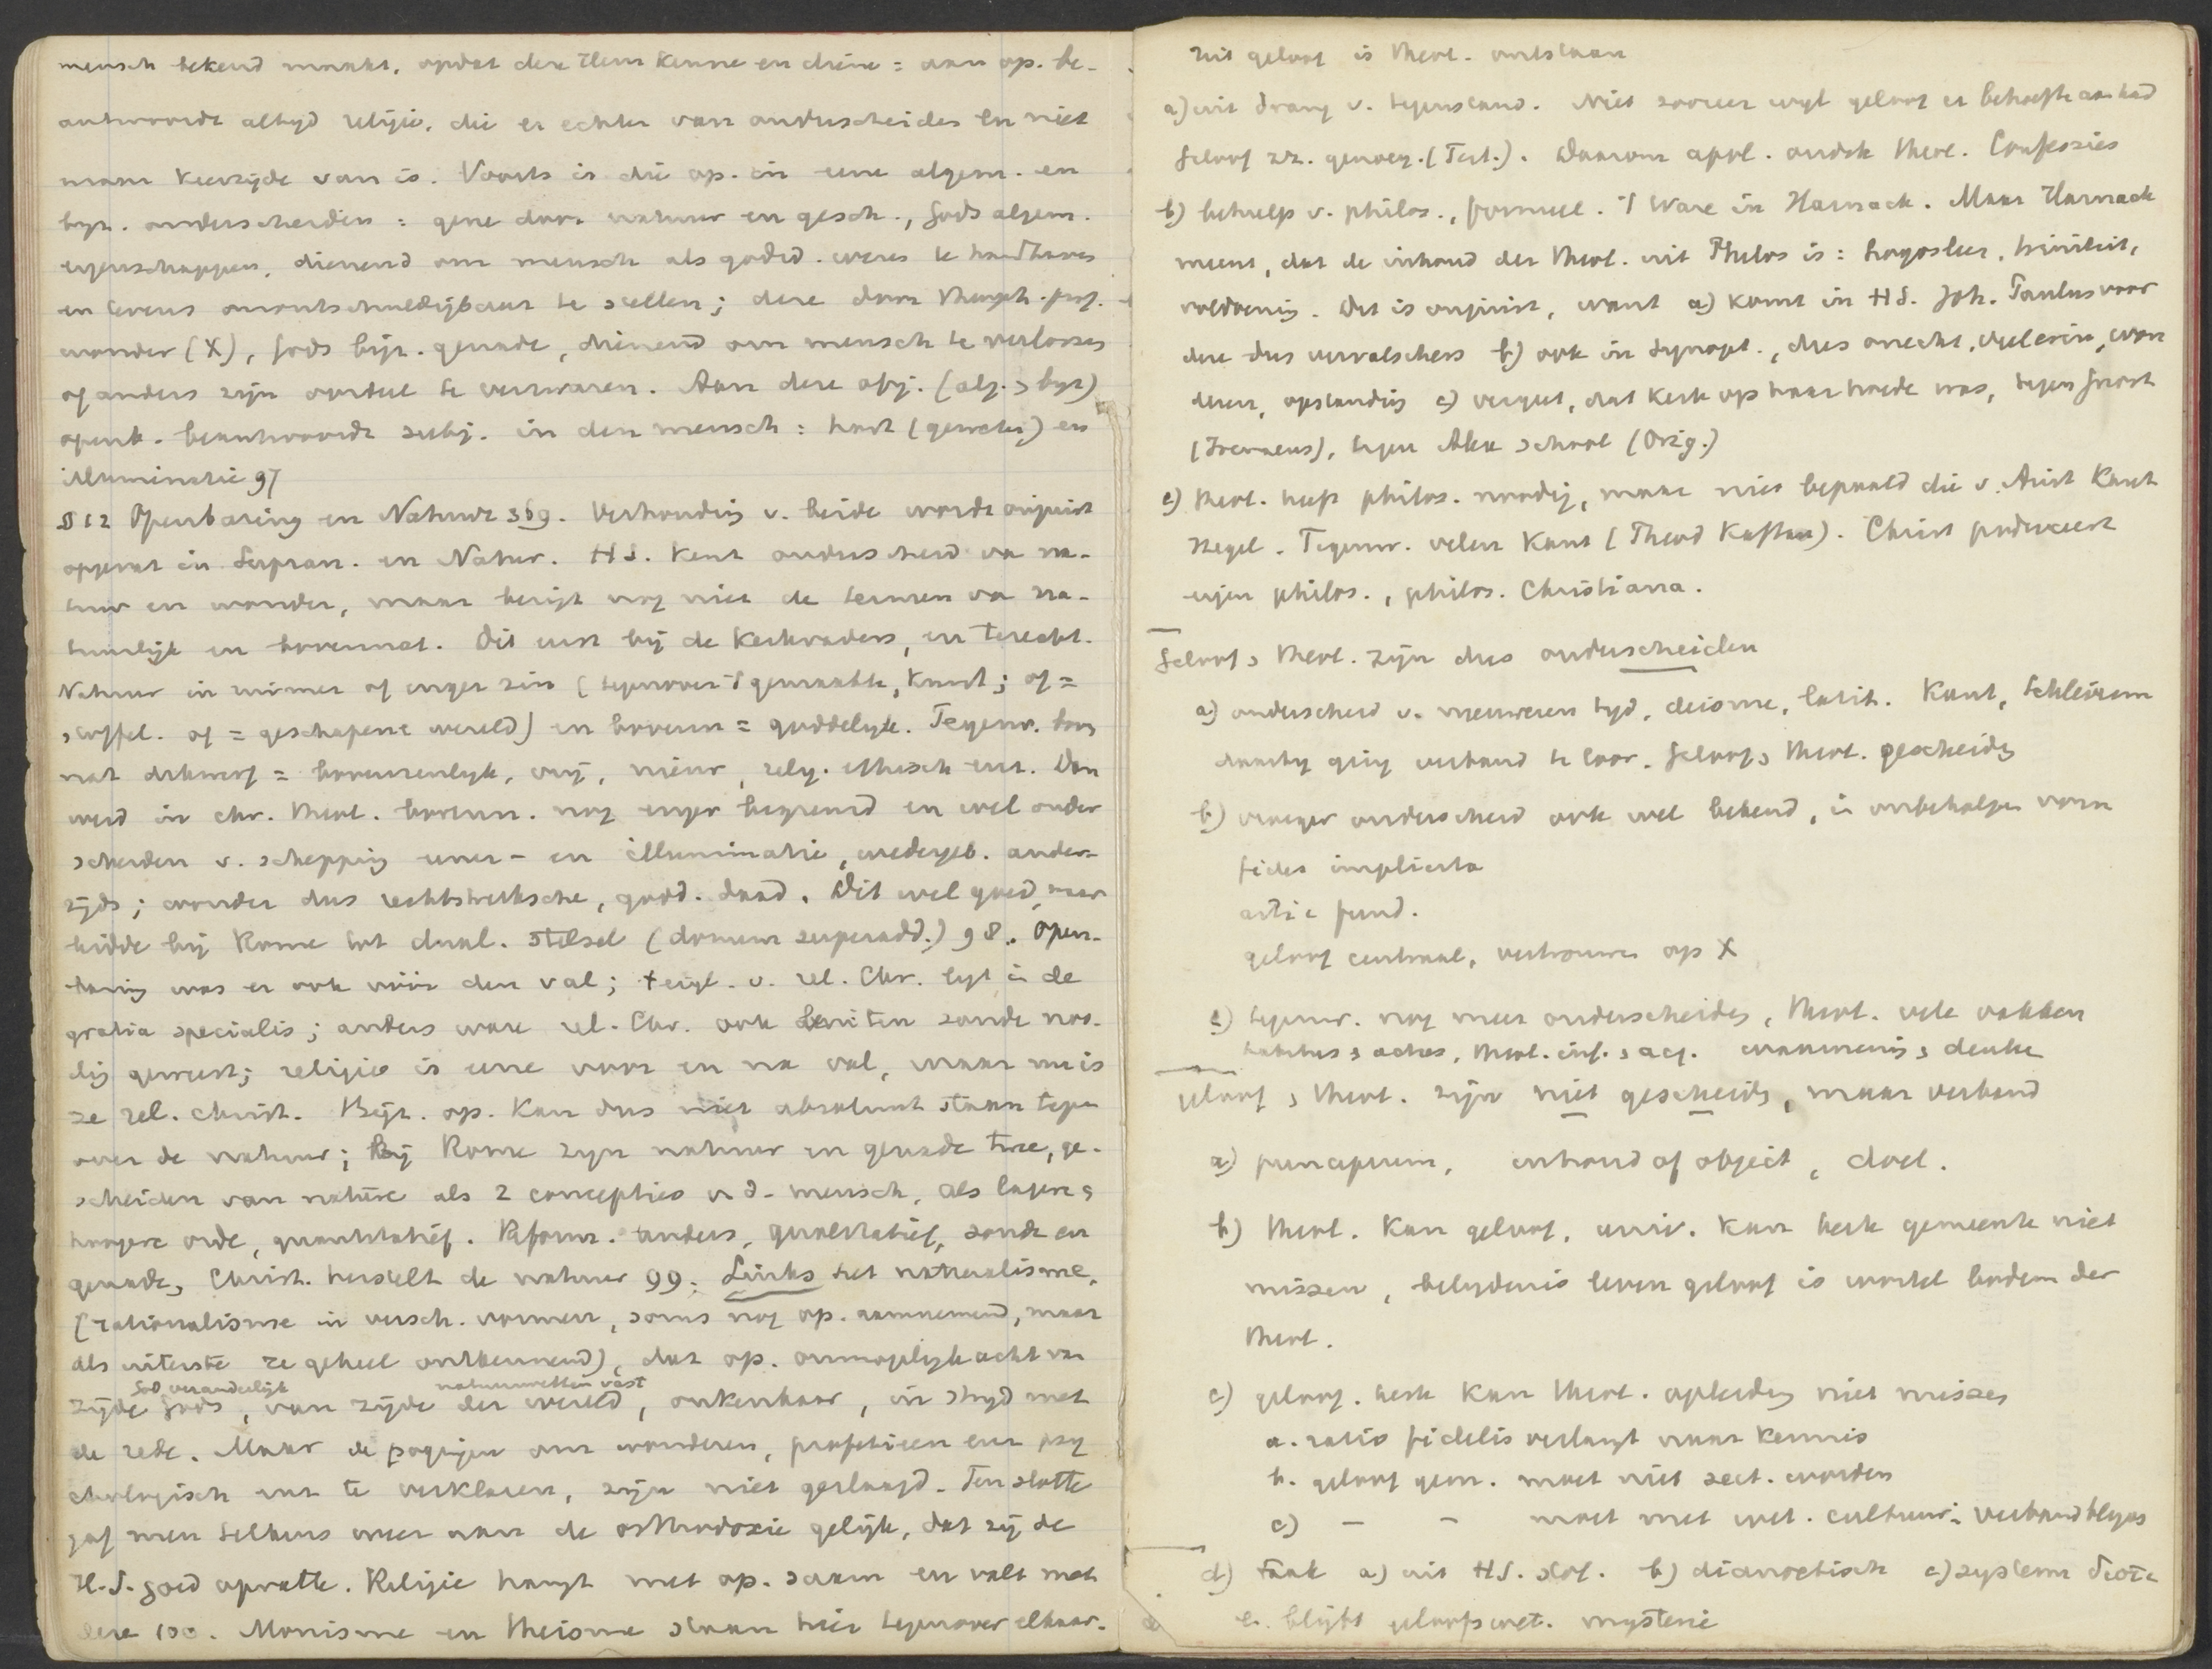 mensch bekend maakt, opdat deze Hem kenne en diene = aan op. be-
antwoordt altyd religie, die er echter van onderscheiden en niet
maar keerzyde van is. Voorts is die op. in eene algem. en
byz. onderscheiden : gene door natuur en gesch., Gods algem.
eigenschappen, dienend om mensch als godsd. wezen te handhaven
en tevens onontschuldigbaar te stellen; deze door theoph. prof.
wonder (X), Gods byz. genade, dienend om mensch te verlossen
of anders zijn oordeel te verzwaren. Aan deze obj. (alg. & byz)
openb. beantwoordt subj. in den mensch : hart (geweten) en
illuminatie 97
§ 12 Openbaring en Natuur 369. Verhouding v. beide wordt onjuist
opgevat in Supran. en Natur. H.S. kent onderscheid van na-
tuur en wonder, maar bezigt nog niet de termen van na-
tuurlijk en bovennat. Dit eerst bij de Kerkvaders, en terecht.
Natuur in ruimer of enger zin (tegenover 't gemaakte, kunst; of =
stoffel. of = geschapene wereld) en bovenn = goddelyk. Tegenw. bov
nat dikwerf = bovenzinlyk, vrij, nieuw, relig. ethisch enz. Dan
werd in chr. theol. bovenn. nog enger begrensd en wel onder
scheiden v. schepping eener- en illuminatie, wedergeb. ander-
zijds; wonder dus rechtstreeksche, godd. daad. Dit wel goed, maar
leidde bij Rome tot dual. stelsel (donum superadd.) 98. Open-
baring was er ook vóór den val; 't eigl. v. rel. Chr. ligt in de
gratia specialis; anders ware rel. Chr. ook buiten zonde noo-
dig geweest; religie is eene voor en na val, maar nu is
ze rel. christ. Bijz. op. kan dus niet absoluut staan tegen
over de natuur; Bij Rome zyn natuur en genade twee, ge-
scheiden van nature als 2 concepties v d. mensch, als lagere &
hoogere orde, quantitatief. Reform. anders, qualitatief, zonde en
genade, Christ. herstelt de natuur 99. Links het naturalisme,
(rationalisme in versch. vormen, soms nog op. aannemend, maar
als uiterste ze geheel ontkennend), dat op. onmogelyk acht van
God veranderlijk natuurwetten vast
zijde Gods, van zijde der wereld, onkenbaar, in stryd met
de rede. Maar de pogingen om wonderen, profetieen enz psy
chologisch enz te verklaren, zijn niet geslaagd. Ten slotte
gaf men telkens weer aan de orthodoxie gelijk, dat zij de
H.S. goed opvatte. Religie hangt met op. saam en valt met
deze 100. Monisme en theisme staan hier tegenover elkaar.
Uit geloof is theol. ontstaan
a) uit drang v. tegenstand. Niet zoozeer wyl geloof er behoefte aan had
Geloof zz. genoeg. (Tert.). Daarom apol. oudste theol. Confessies
b) behulp v. philos., formeel. 't Ware in Harnack. Maar Harnack
meent, dat de inhoud der theol. uit Philos is : Logosleer, triniteit,
voldoening. Dit is onjuist, want a) komt in H.S. Joh. Paulus voor
deze dus vervalschers b) ook in Synopt., dus onecht, wonderen, opstanding c) vergeet, dat kerk op haar hoede was, tegen Gnost
(Irenaeus), tegen Alex school (Orig.)
c) theol. heeft philos. noodig, maar niet bepaald die v. Arist Kant
Hegel. Tegenw. velen Kant (Theod Kaftan). Christ produceert
eigen philos., philos. Christiana.
Geloof & theol. zijn dus onderscheiden
a) onderscheid v. nieuweren tyd, deisme, latit. Kant, Schleierm
daarby ging verband te loor. Geloof & theol. gescheiden
b) vroeger onderscheid ook wel bekend, in onbeholpen vorm
fides implicita
artic fund.
geloof centraal, vertrouwen op X
c) tegenw. nog meer onderscheiden, theol. vele vakken
habitus & actus, theol. inf. & acq. waarneming & denken
geloof & theol. zijn niet gescheiden, maar verband
a) principium, inhoud of object, doel.
b) theol. kan geloof, univ. kan kerk gemeente niet
missen, belydenis leven geloof is wortel bodem der
theol.
c) geloof. kerk kan theol. opleiding niet missen
a. ratio fidelis verlangt naar kennis
b. geloof gem. moet niet sect. worden
c) – – moet met wet. cultuur in verband blyven
d) taak a) uit H.S. stof. b) dianoetisch c) systema
e. blijft geloofswet. mysterie